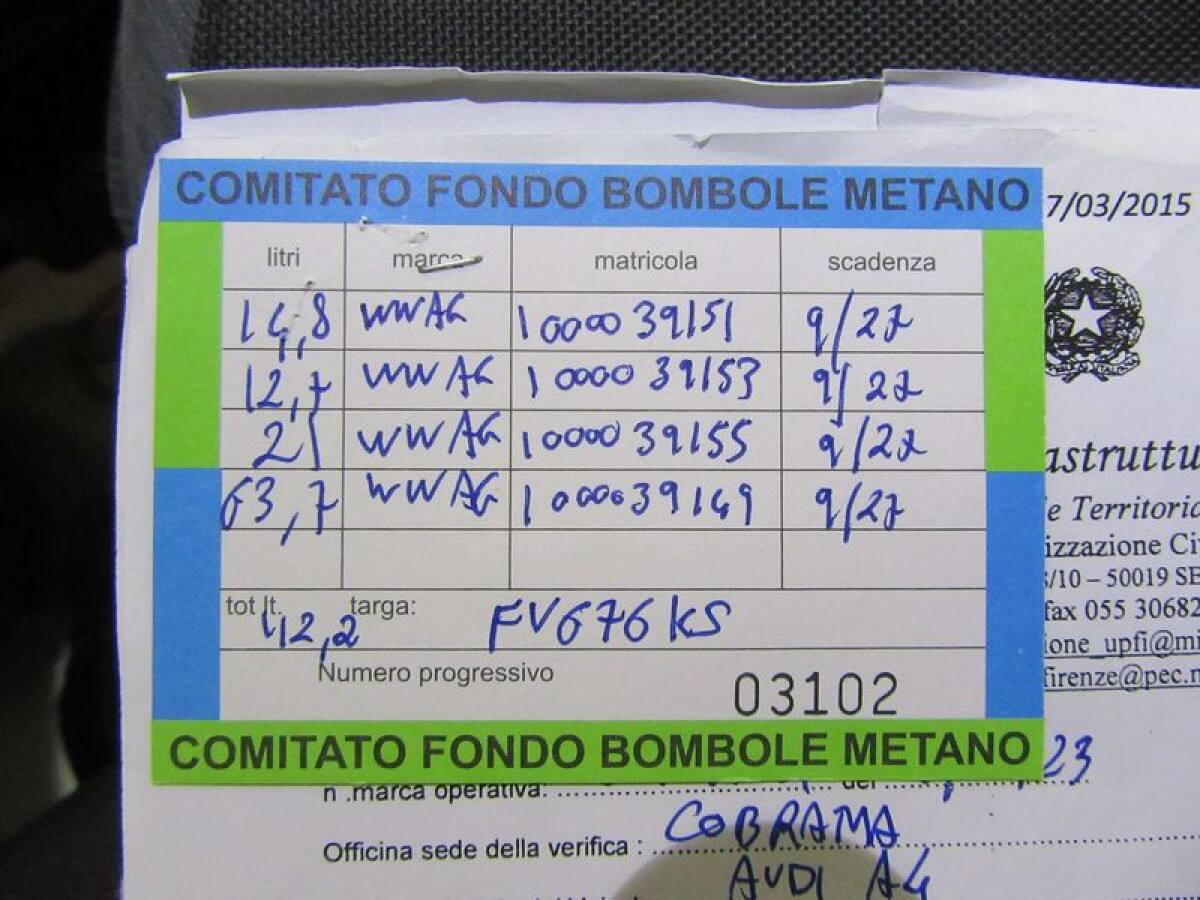 COMITATO FONDO BOMBOLE METANO
7/03/2015
litri marca matricola scadenza
14,8 WWAG 1000039151 9/27
12,7 WWAG 1000039153 9/27
21 WWAG 1000039155 9/27
63,7 WWAG 1000039149 9/27
tot lt. 112,2 targa: FV676KS
Numero progressivo 03102
COMITATO FONDO BOMBOLE METANO
astruttu
e Territoria
izzazione Ci
/10 – 50019 SE
fax 055 30682
ione_upfi@mi
firenze@pec.m
23
n .marca operativa: del
Officina sede della verifica : COBRAMA
AUDI A4